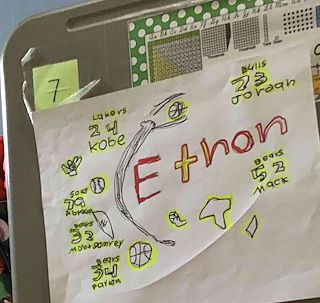 7
Lakers
24
Kobe
Bulls
23
Jordan
Ethon
Bears
52
Mack
Sox
79
Abreu
Bears
32
Montgomrey
Bears
34
Payton